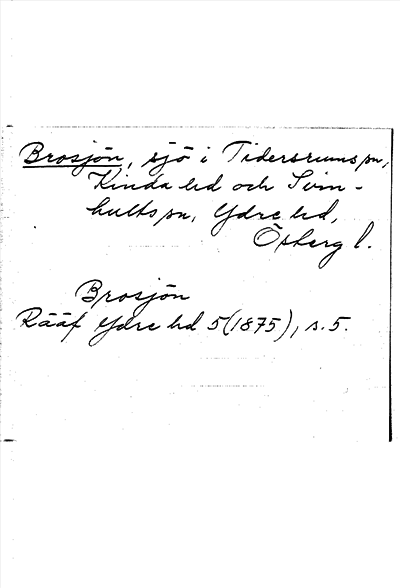 Brosjön, sjö i Tidersrums sn,
Kinda hd och Svin-
hults sn, Ydre hd,
Österg l.
Brosjön
Rääf Ydre hd 5(1875), s. 5.